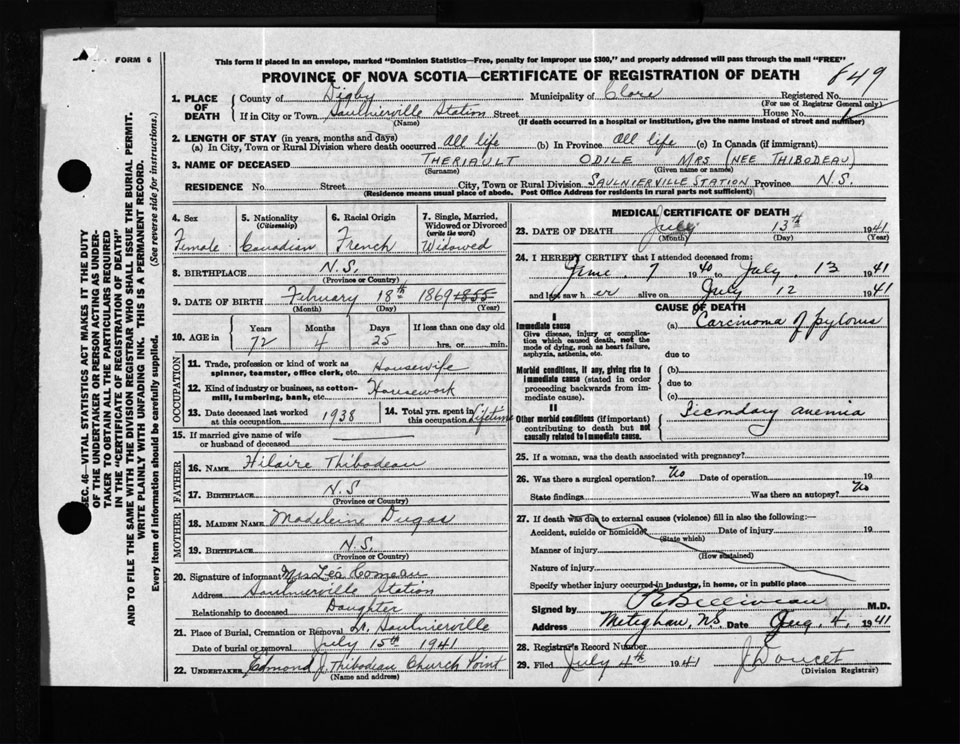 FORM 6
This form if placed in an envelope, marked "Dominion Statistics—Free, penalty for improper use $300," and properly addressed will pass through the mail "FREE"
PROVINCE OF NOVA SCOTIA—CERTIFICATE OF REGISTRATION OF DEATH
849
1. PLACE OF DEATH
County of Digby Municipality of Clare Registered No.
(For use of Registrar General only)
If in City or Town Saulnierville Station Street House No.
(Name) (If death occurred in a hospital or institution, give the name instead of street and number)
2. LENGTH OF STAY (in years, months and days)
(a) In City, Town or Rural Division where death occurred All life (b) In Province All life (c) In Canada (if immigrant)
3. NAME OF DECEASED THERIAULT ODILE MRS (NEE THIBODEAU)
(Surname) (Given name or names)
RESIDENCE No. Street City, Town or Rural Division SAULNIERVILLE STATION Province N.S.
(Residence means usual place of abode. Post Office Address for residents in rural parts not sufficient)
4. Sex
Female
5. Nationality
(Citizenship)
Canadian
6. Racial Origin
French
7. Single, Married, Widowed or Divorced
(write the word)
Widowed
8. BIRTHPLACE N.S.
(Province or Country)
9. DATE OF BIRTH February 18th 1869 1855
(Month) (Day) (Year)
10. AGE in
Years Months Days If less than one day old
72 4 25 hrs. or min.
OCCUPATION
11. Trade, profession or kind of work as spinner, teamster, office clerk, etc. Housewife
12. Kind of industry or business, as cotton-mill, lumbering, bank, etc. Housework
13. Date deceased last worked at this occupation 1938
14. Total yrs. spent in this occupation Lifetime
15. If married give name of wife or husband of deceased
FATHER
16. Name Hilaire Thibodeau
17. Birthplace N.S
(Province or Country)
MOTHER
18. Maiden Name Madeleine Dugas
19. Birthplace N.S.
(Province or Country)
20. Signature of informant Mrs Léa Comeau
Address Saulnierville Station
Relationship to deceased Daughter
21. Place of Burial, Cremation or Removal Saulnierville
Date of burial or removal July 15th 1941
22. Undertaker Edmond J. Thibodeau Church Point
(Name and address)
MEDICAL CERTIFICATE OF DEATH
23. DATE OF DEATH July 13th 1941
(Month) (Day) (Year)
24. I HEREBY CERTIFY that I attended deceased from:
June 7 1940 to July 13 1941
and last saw her alive on July 12 1941
CAUSE OF DEATH
I
Immediate cause
Give disease, injury or complication which caused death, not the mode of dying, such as heart failure, asphyxia, asthenia, etc.
(a) Carcinoma of pylorus
due to
Morbid conditions, if any, giving rise to immediate cause (stated in order proceeding backwards from immediate cause).
(b)
due to
(c)
II
Other morbid conditions (if important) contributing to death but not causally related to immediate cause.
Secondary anemia
25. If a woman, was the death associated with pregnancy?
26. Was there a surgical operation? No Date of operation 19
State findings Was there an autopsy? No
27. If death was due to external causes (violence) fill in also the following:—
Accident, suicide or homicide? Date of injury 19
(State which)
Manner of injury
(How sustained)
Nature of injury
Specify whether injury occurred in industry, in home, or in public place
Signed by Belliveau M.D.
Address Meteghan, N.S. Date Aug. 4, 1941
28. Registrar's Record Number
29. Filed July 4th 1941 J Doucet
(Division Registrar)
SEC. 46—VITAL STATISTICS ACT MAKES IT THE DUTY
OF THE UNDERTAKER OR PERSON ACTING AS UNDER-
TAKER TO OBTAIN ALL THE PARTICULARS REQUIRED
IN THE "CERTIFICATE OF REGISTRATION OF DEATH"
AND TO FILE THE SAME WITH THE DIVISION REGISTRAR WHO SHALL ISSUE THE BURIAL PERMIT.
WRITE PLAINLY WITH UNFADING INK. THIS IS A PERMANENT RECORD.
Every item of information should be carefully supplied. (See reverse side for instructions.)